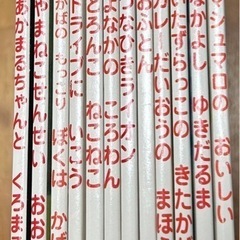 あかまるちゃんと くろまる
やまねこせんせい おお
かばの もっこり ぼくは かば
ドライブに いこう
どろんこ ねこねこ
よなかの ころわん
なびきライオン
おふとん
カレーだいおうの まほう
いたずらっこの きたか
なかよし ゆきだるま
マシュマロの おいしい